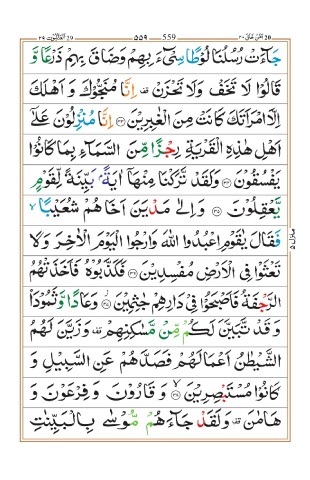 ٥٥٩ 559
جَآءَتْ رُسُلُنَا لُوْطًا سِیْٓءَ بِهِمْ وَضَاقَ بِهِمْ ذَرْعًا وَّ
قَالُوْا لَا تَخَفْ وَلَا تَحْزَنْ ۫ اِنَّا مُنَجُّوْكَ وَ اَهْلَكَ
اِلَّا امْرَاَتَكَ كَانَتْ مِنَ الْغٰبِرِیْنَ ﴿۳۳﴾ اِنَّا مُنْزِلُوْنَ عَلٰۤی
اَهْلِ هٰذِهِ الْقَرْیَةِ رِجْزًا مِّنَ السَّمَآءِ بِمَا كَانُوْا
یَفْسُقُوْنَ ﴿۳۴﴾ وَلَقَدْ تَّرَكْنَا مِنْهَاۤ اٰیَةًۢ بَیِّنَةً لِّقَوْمٍ
یَّعْقِلُوْنَ ﴿۳۵﴾ وَ اِلٰی مَدْیَنَ اَخَاهُمْ شُعَیْبًا ۙ
فَقَالَ یٰقَوْمِ اعْبُدُوا اللّٰهَ وَارْجُوا الْیَوْمَ الْاٰخِرَ وَلَا
تَعْثَوْا فِی الْاَرْضِ مُفْسِدِیْنَ ﴿۳۶﴾ فَكَذَّبُوْهُ فَاَخَذَتْهُمُ
الرَّجْفَةُ فَاَصْبَحُوْا فِیْ دَارِهِمْ جٰثِمِیْنَ ﴿۳۷﴾ وَعَادًا وَّ ثَمُوْدَا۠
وَ قَدْ تَّبَیَّنَ لَكُمْ مِّنْ مَّسٰكِنِهِمْ ۫ وَ زَیَّنَ لَهُمُ
الشَّیْطٰنُ اَعْمَالَهُمْ فَصَدَّهُمْ عَنِ السَّبِیْلِ وَ
كَانُوْا مُسْتَبْصِرِیْنَ ۙ﴿۳۸﴾ وَ قَارُوْنَ وَ فِرْعَوْنَ وَ
هَامٰنَ ۫ وَلَقَدْ جَآءَهُمْ مُّوْسٰی بِالْبَیِّنٰتِ